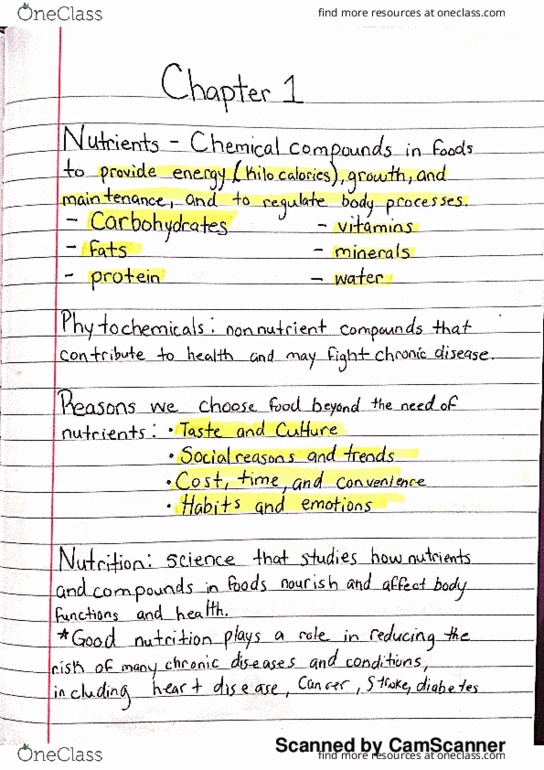 OneClass find more resources at oneclass.com
Chapter 1
Nutrients - Chemical compounds in foods
to provide energy (kilocalories), growth, and
maintenance, and to regulate body processes.
- Carbohydrates - vitamins
- fats - minerals
- protein - water
Phytochemicals: nonnutrient compounds that
contribute to health and may fight chronic disease.
Reasons we choose food beyond the need of
nutrients: • Taste and Culture
• Social reasons and trends
• Cost, time, and convenience
• Habits and emotions
Nutrition: science that studies how nutrients
and compounds in foods nourish and affect body
functions and health.
*Good nutrition plays a role in reducing the
risk of many chronic diseases and conditions,
including heart disease, Cancer, Stroke, diabetes
Scanned by CamScanner
OneClass find more resources at oneclass.com